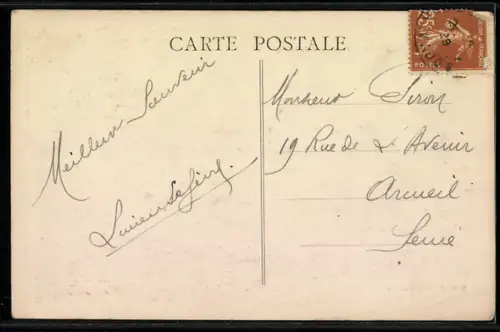 CARTE POSTALE
Meilleur Souvenir
Lucien Lefèvre
Monsieur Siron
19 Rue de l'Avenir
Arcueil
Seine